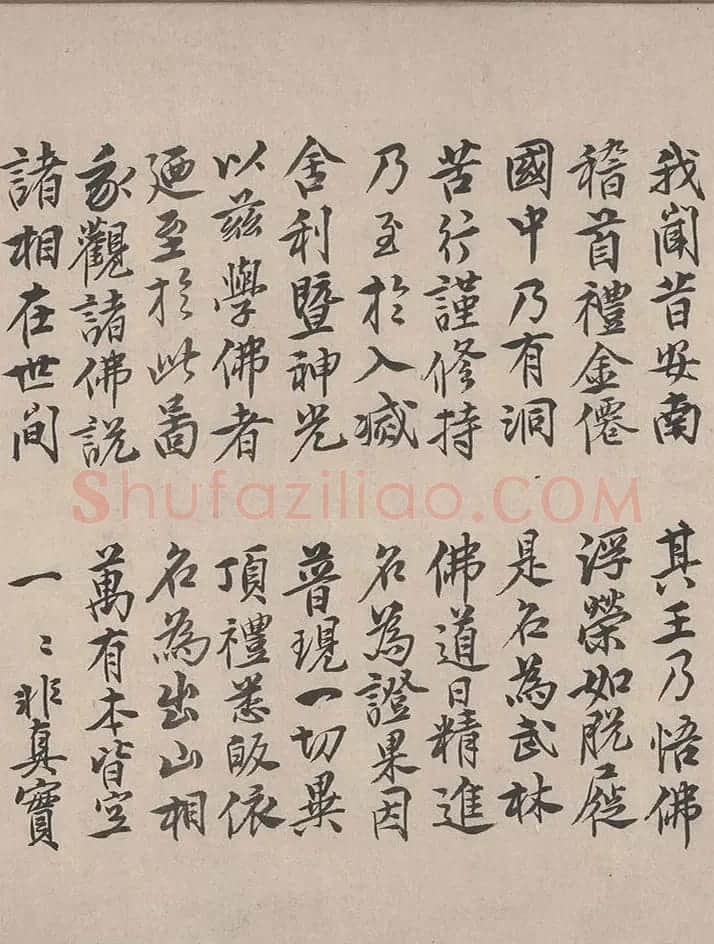 我聞昔安南 其王乃悟佛
稽首禮金僊 浮榮如脱屣
國中乃有洞 是名為武林
苦行謹修持 佛道日精進
乃至於入滅 名為證果因
舍利暨神光 普現一切異
以兹學佛者 頂禮悉皈依
廼至於此啚 名為出山相
我觀諸佛説 萬有本皆空
諸相在世間 一〻非真實
Shufaziliao.COM